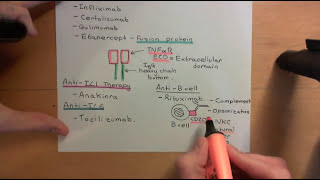 - Infliximab
- Certolizumab
- Golimumab
- Etanercept - Fusion protein
TNFαR
ECD = Extracellular
domain
IgG
heavy chain
Anti-IL1 Therapy
- Anakinra
Anti-IL6
- Tocilizumab.
Anti-B cell
- Rituximab
- Complement
- Opsonization
CD20
NKC
B cell